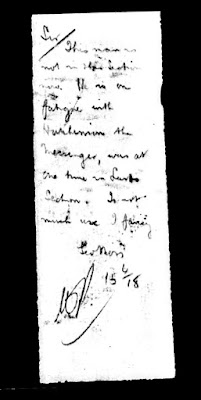 Sir
This man is
not in this Section
now. He is on
fatigue with
the
Messenger, was at
one time in
Section. Is not
much use I fancy
15/6/18